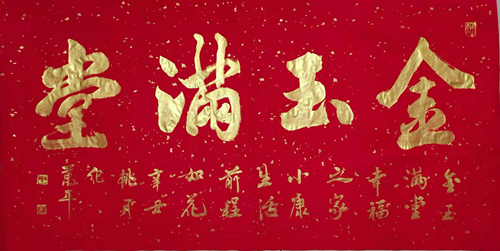 金玉满堂
金玉
满堂
幸福
之家
小康
生活
前程
如花
辛丑
桃月